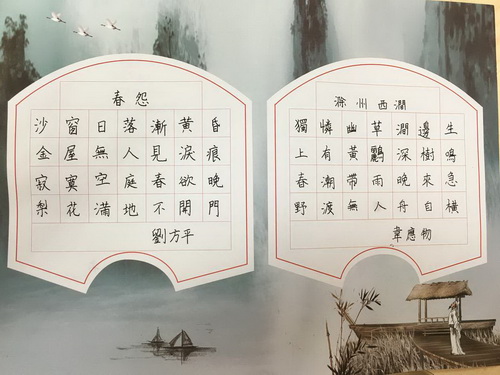 春怨
沙窗日落漸黃昏
金屋無人見淚痕
寂寞空庭春欲晚
梨花滿地不開門
劉方平
滁州西澗
獨憐幽草澗邊生
上有黃鸝深樹鳴
春潮帶雨晚來急
野渡無人舟自橫
韋應物